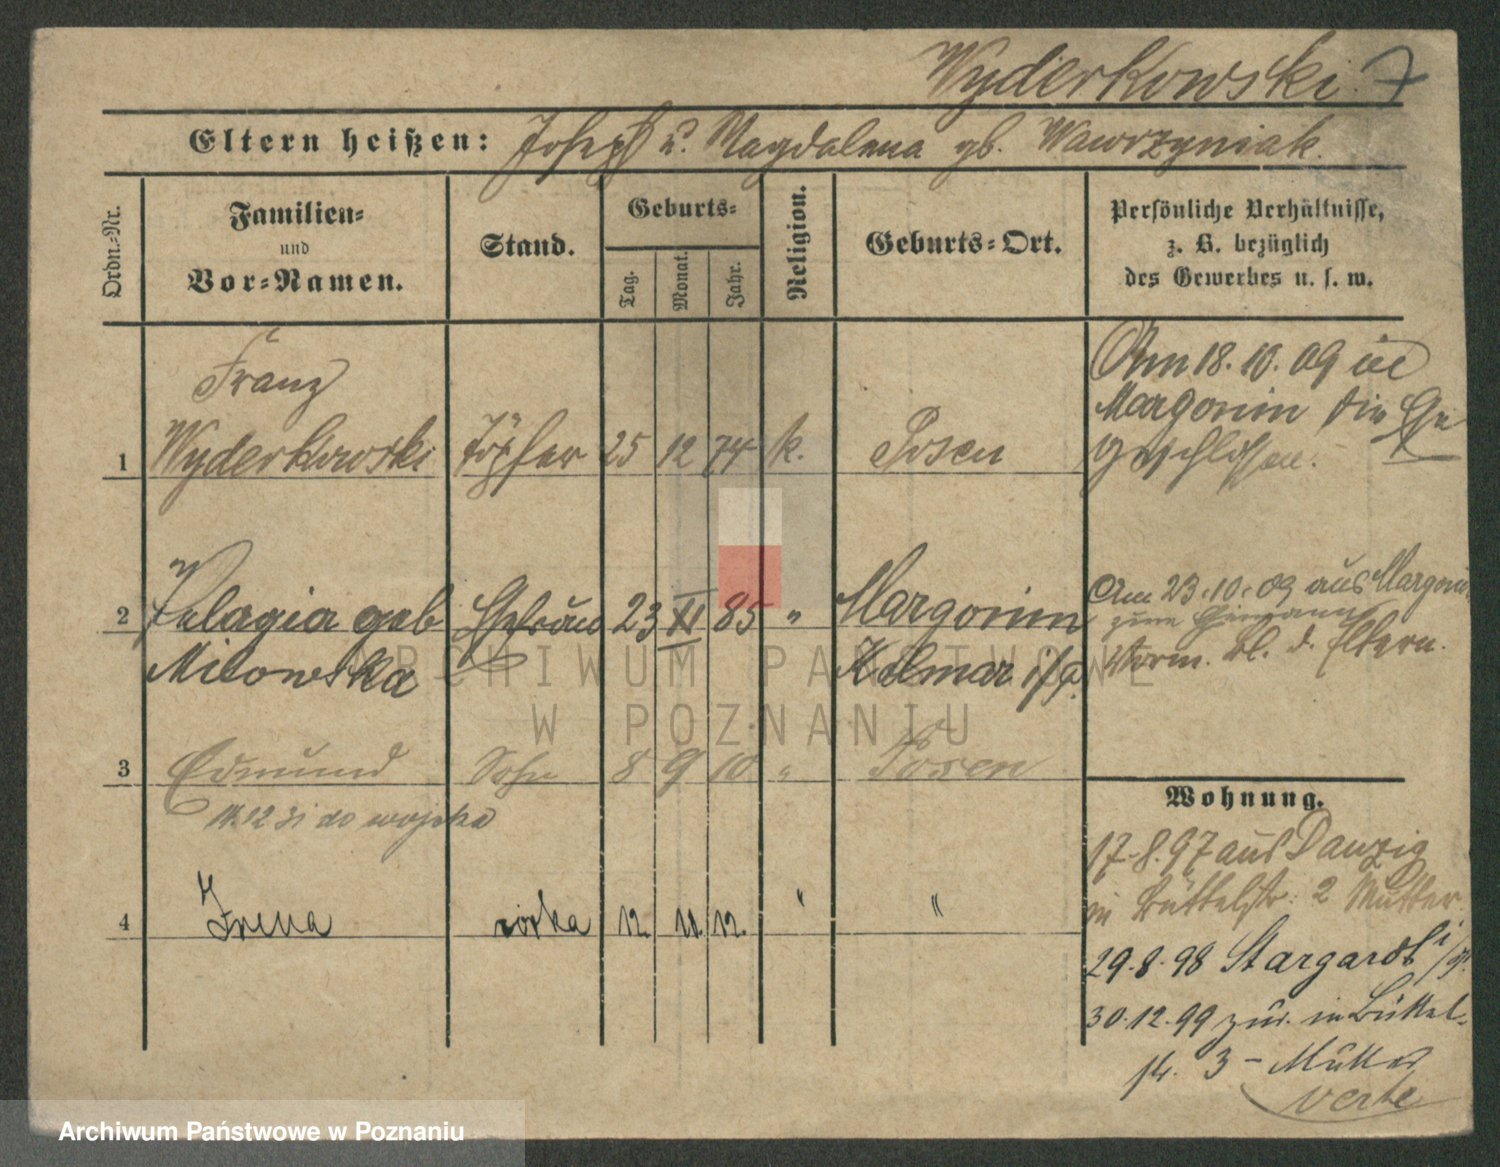 Wyderkowski. 7
Eltern heißen: Joseph u. Magdalena gb. Wawrzyniak.
Ordn.-Nr.
Familien-
und
Vor-Namen.
Stand.
Geburts-
Tag.
Monat.
Jahr.
Religion.
Geburts-Ort.
Persönliche Verhältnisse,
z. B. bezüglich
des Gewerbes u. s. w.
Franz
1 Wyderkowski Töpfer 25 12 74 k. Posen
Am 18.10.09 in
Margonin die Ehe
geschlossen.
2 Pelagia geb Ehefrau 23 XI 85 " Margonin
Milowska Kolmar i/P.
Am 23.10.09 aus Margonin
zum Ehemann
Worm. bl. d. Eltern.
3 Edmund Sohn 8 9 10 " Posen
11.12 31 do wojska
4 Irena córka 12. 11. 12. " "
Wohnung.
17.8.97 aus Danzig
in Büttelstr: 2 Mutter
29.8.98 Stargardt i/
30.12.99 zur. in Büttel-
14. 3 - Mutter
verte
ARCHIWUM PAŃSTWOWE
W POZNANIU
Archiwum Państwowe w Poznaniu